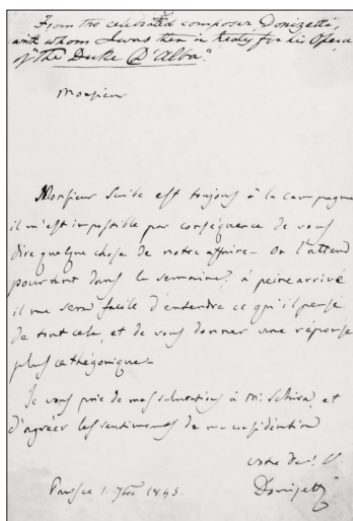 From the celebrated composer Donizetti,
with whom I was then in treaty for his Opera
of "The Duke D'Alba".
Monsieur
Monsieur Scribe est toujours à la campagne
il m'est impossible par conséquence de vous
dire quelque chose de notre affaire - On l'attend
pourtant dans la semaine, à peine arrivé
il me sera facile d'entendre ce qu'il pense
de tout cela, et de vous donner une réponse
plus cathégorique -
Je vous prie de mes salutations à Mr. Schira, et
d'agréer les sentiments de ma considération
votre
Donizetti
1843.